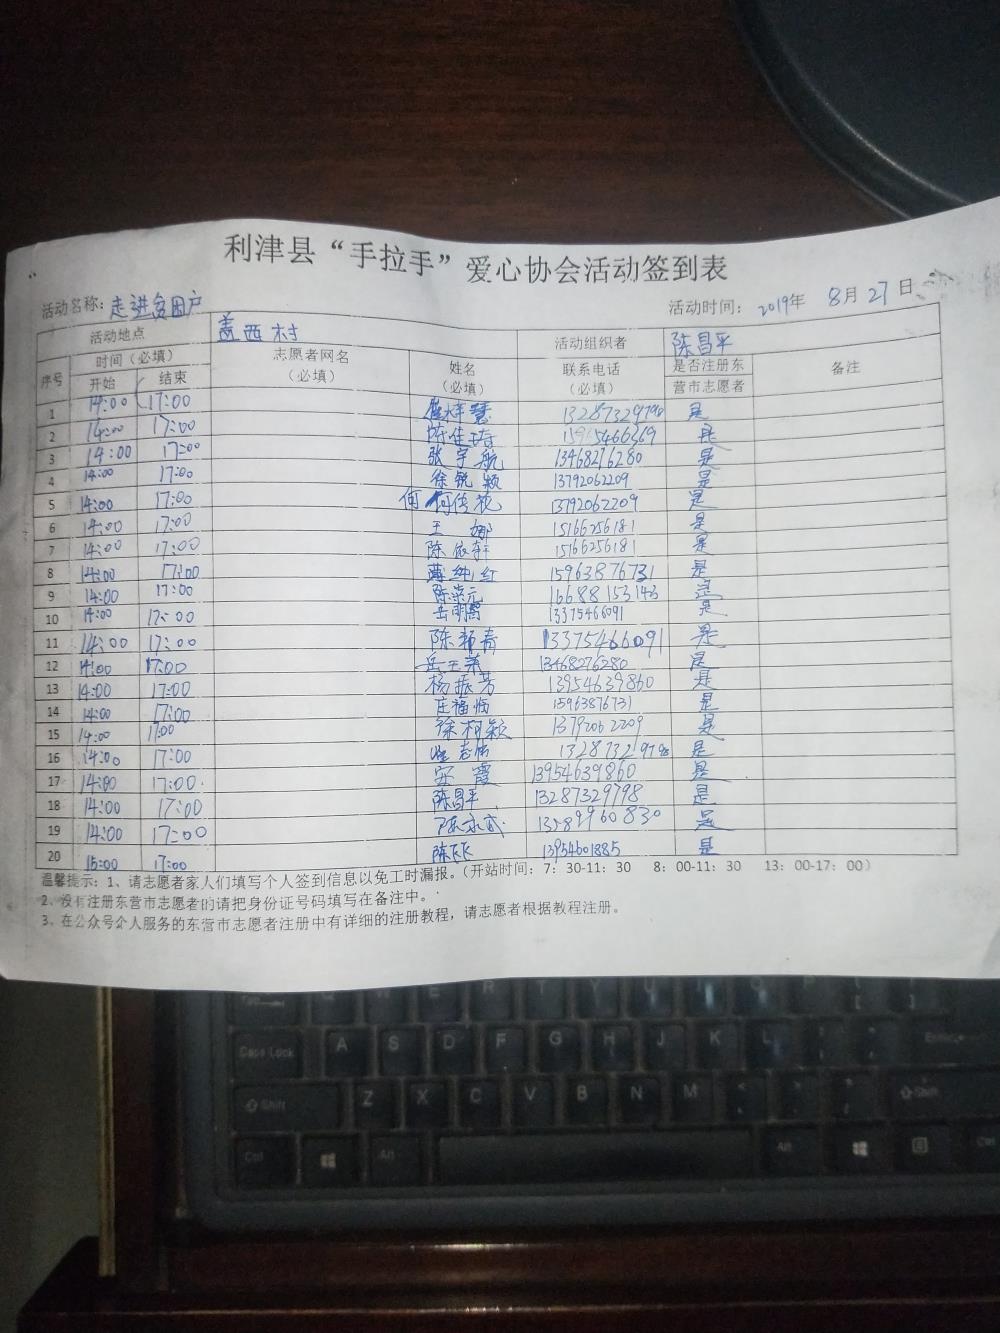 利津县“手拉手”爱心协会活动签到表
活动名称：走进贫困户 活动时间：2019年 8月27日
活动地点 盖西村 活动组织者 陈昌平
序号 时间（必填） 志愿者网名（必填） 姓名（必填） 联系电话（必填） 是否注册东营市志愿者 备注
开始 结束
1 14:00 17:00 13287329798 是
2 14:00 17:00 陈佳琦 是
3 14:00 17:00 张宇航 13468276280 是
4 14:00 17:00 徐锐颖 13792062209 是
5 14:00 17:00 何传花 13792062209 是
6 14:00 17:00 王娜 15166256181 是
7 14:00 17:00 陈依轩 15166256181 是
8 14:00 17:00 15963876731 是
9 14:00 17:00 陈荣元 16688153143 是
10 14:00 17:00 13375466091 是
11 14:00 17:00 陈新青 13375466091 是
12 14:00 17:00 岳玉荣 13468276280 是
13 14:00 17:00 杨振芳 13954639860 是
14 14:00 17:00 庄福临 15963876731 是
15 14:00 17:00 徐柯颖 13792062209 是
16 14:00 17:00 13287329798 是
17 14:00 17:00 安霞 13954639860 是
18 14:00 17:00 陈昌平 13287329798 是
19 14:00 17:00 陈永武 13589960830 是
20 15:00 17:00 陈飞飞 13954601885 是
温馨提示：1、请志愿者家人们填写个人签到信息以免工时漏报。（开站时间：7：30-11：30 8：00-11：30 13：00-17：00）
2、没有注册东营市志愿者的请把身份证号码填写在备注中。
3、在公众号个人服务的东营市志愿者注册中有详细的注册教程，请志愿者根据教程注册。
Q W E R T Y U I O P
Caps Lock A S D F G H J K L Enter
Shift Z X C V B N M Shift
Ctrl Alt Alt Ctrl